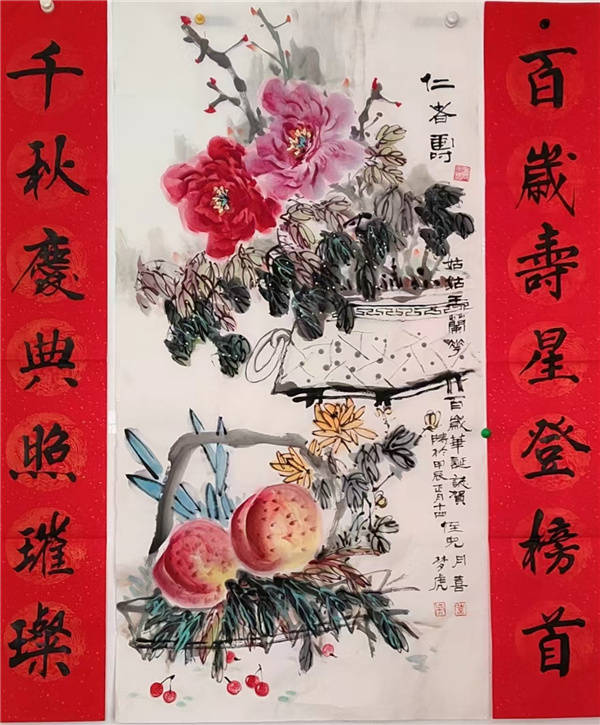 百歲壽星登榜首
仁者壽
姑姑王蘭 百歲華誕誌賀 侄兒月喜
於甲辰正月十四 梦虎
千秋慶典照璀璨